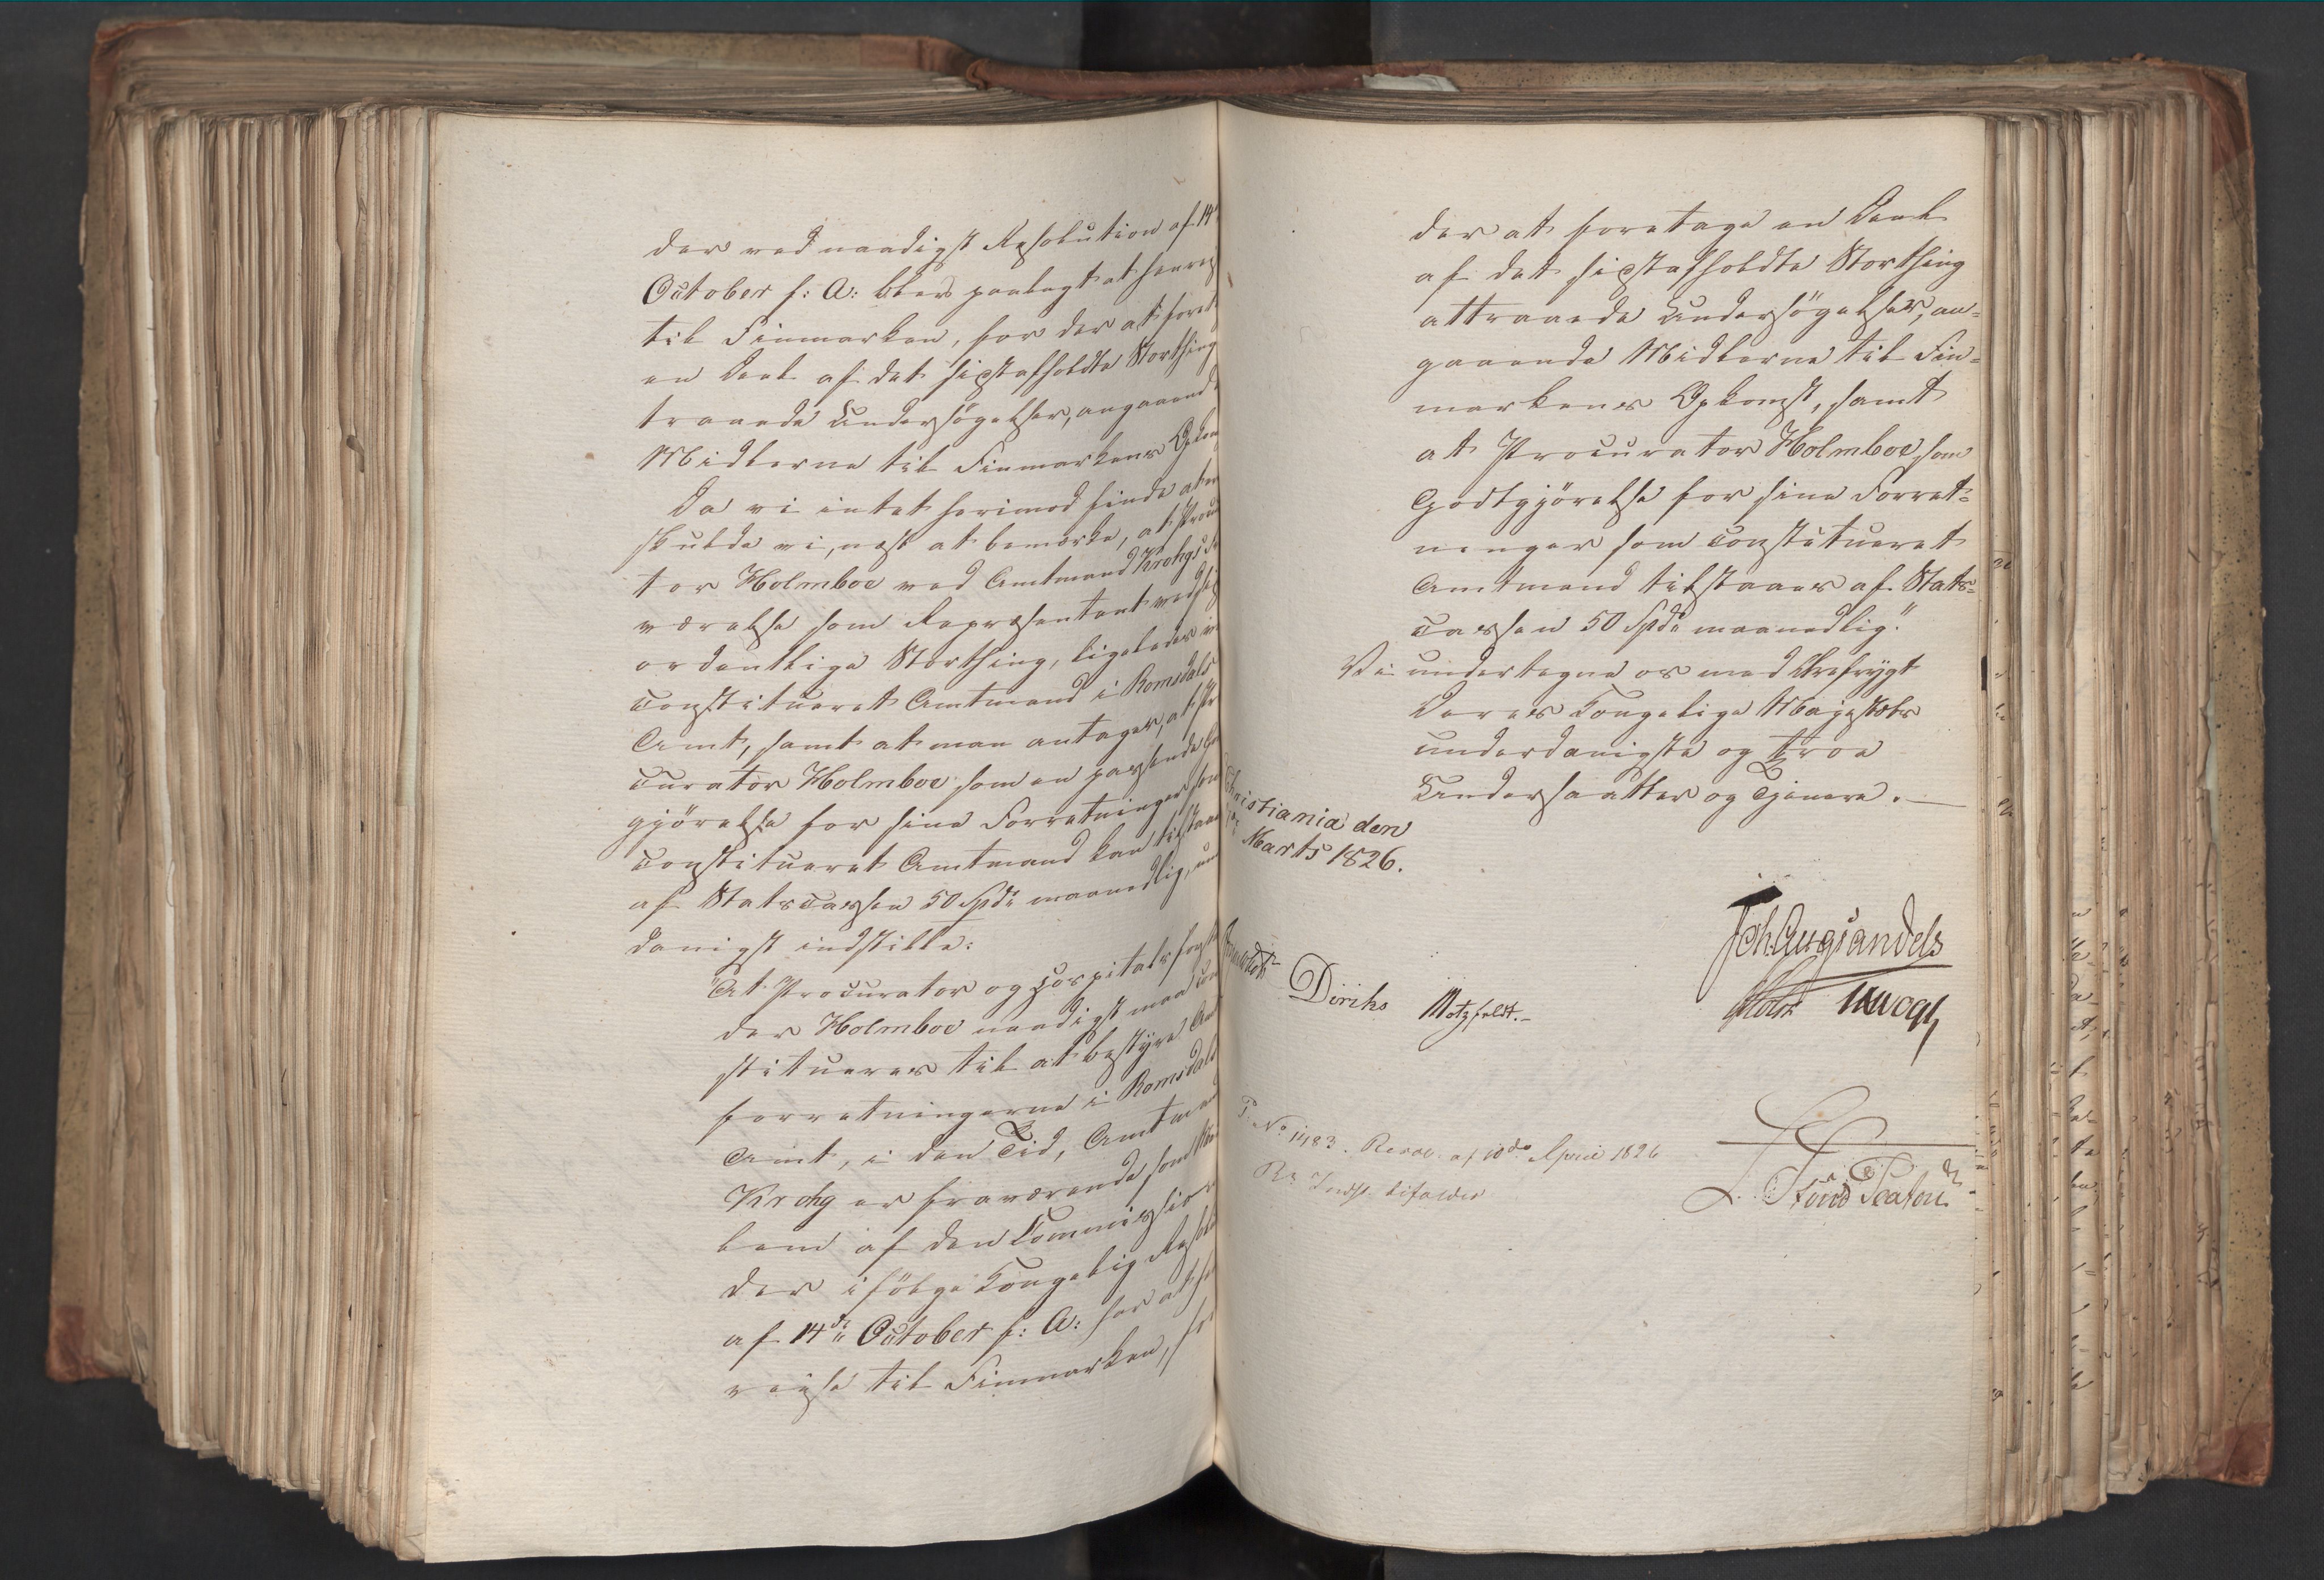 der ved naadigst Resolution af 14
October f: A: blev paalagt at henrejs
til Finmarken, for der at foret
en Deel af det sidstafholdte Storthing
traaede Undersögelser, angaaend
Midlerne til Finmarkens Opkom
Da vi intet herimod finde at er
skulde vi, næst at bemærke, at Procu
tor Holmboe ved Amtmand Krohgs Fra
værelse som Repræsentant ved sidst
ordentlige Storthing, ligeledes var
constitueret Amtmand i Romsdals
Amt, samt at man antager, at Pr
curator Holmboe som en passende God
gjörelse for sine Forretninger som
constitueret Amtmand kan tilstaaes
af Statscassen 50 Spd maanedlig, un
danigst indstille:
"At Procurator og Hospitalsforst
der Holmboe naadigst maa con
stitueres til at bestyre Amt
forretningerne i Romsdals
Amt, i den Tid, Amtmand
Krohg er fraværende som Med
lem af den Commission
der ifölge Kongelig Resolu
af 14de October f: A: har at hen
rejse til Finmarken, for
der at foretage en Deel
af det sidstafholdte Storthing
attraaede Undersögelser, an-
gaaende Midlerne til Fin-
markens Opkomst, samt
at Procurator Holmboe, som
Godtgjörelse for sine Forret-
ninger som constitueret
Amtmand tilstaaes af Stats-
cassen 50 Spd maanedlig."
Vi undertegne os med Ærefrygt
Deres Kongelige Majestæts
underdanigste og troe
Undersaatter og Tjenere.
Christiania den
Marts 1826.
Joh. Aug. Sandels
Diriks Motzfeldt. Holst Krogh
P. No 1483. Resol. af 10de April 1826
Rs Indst. bifaldes